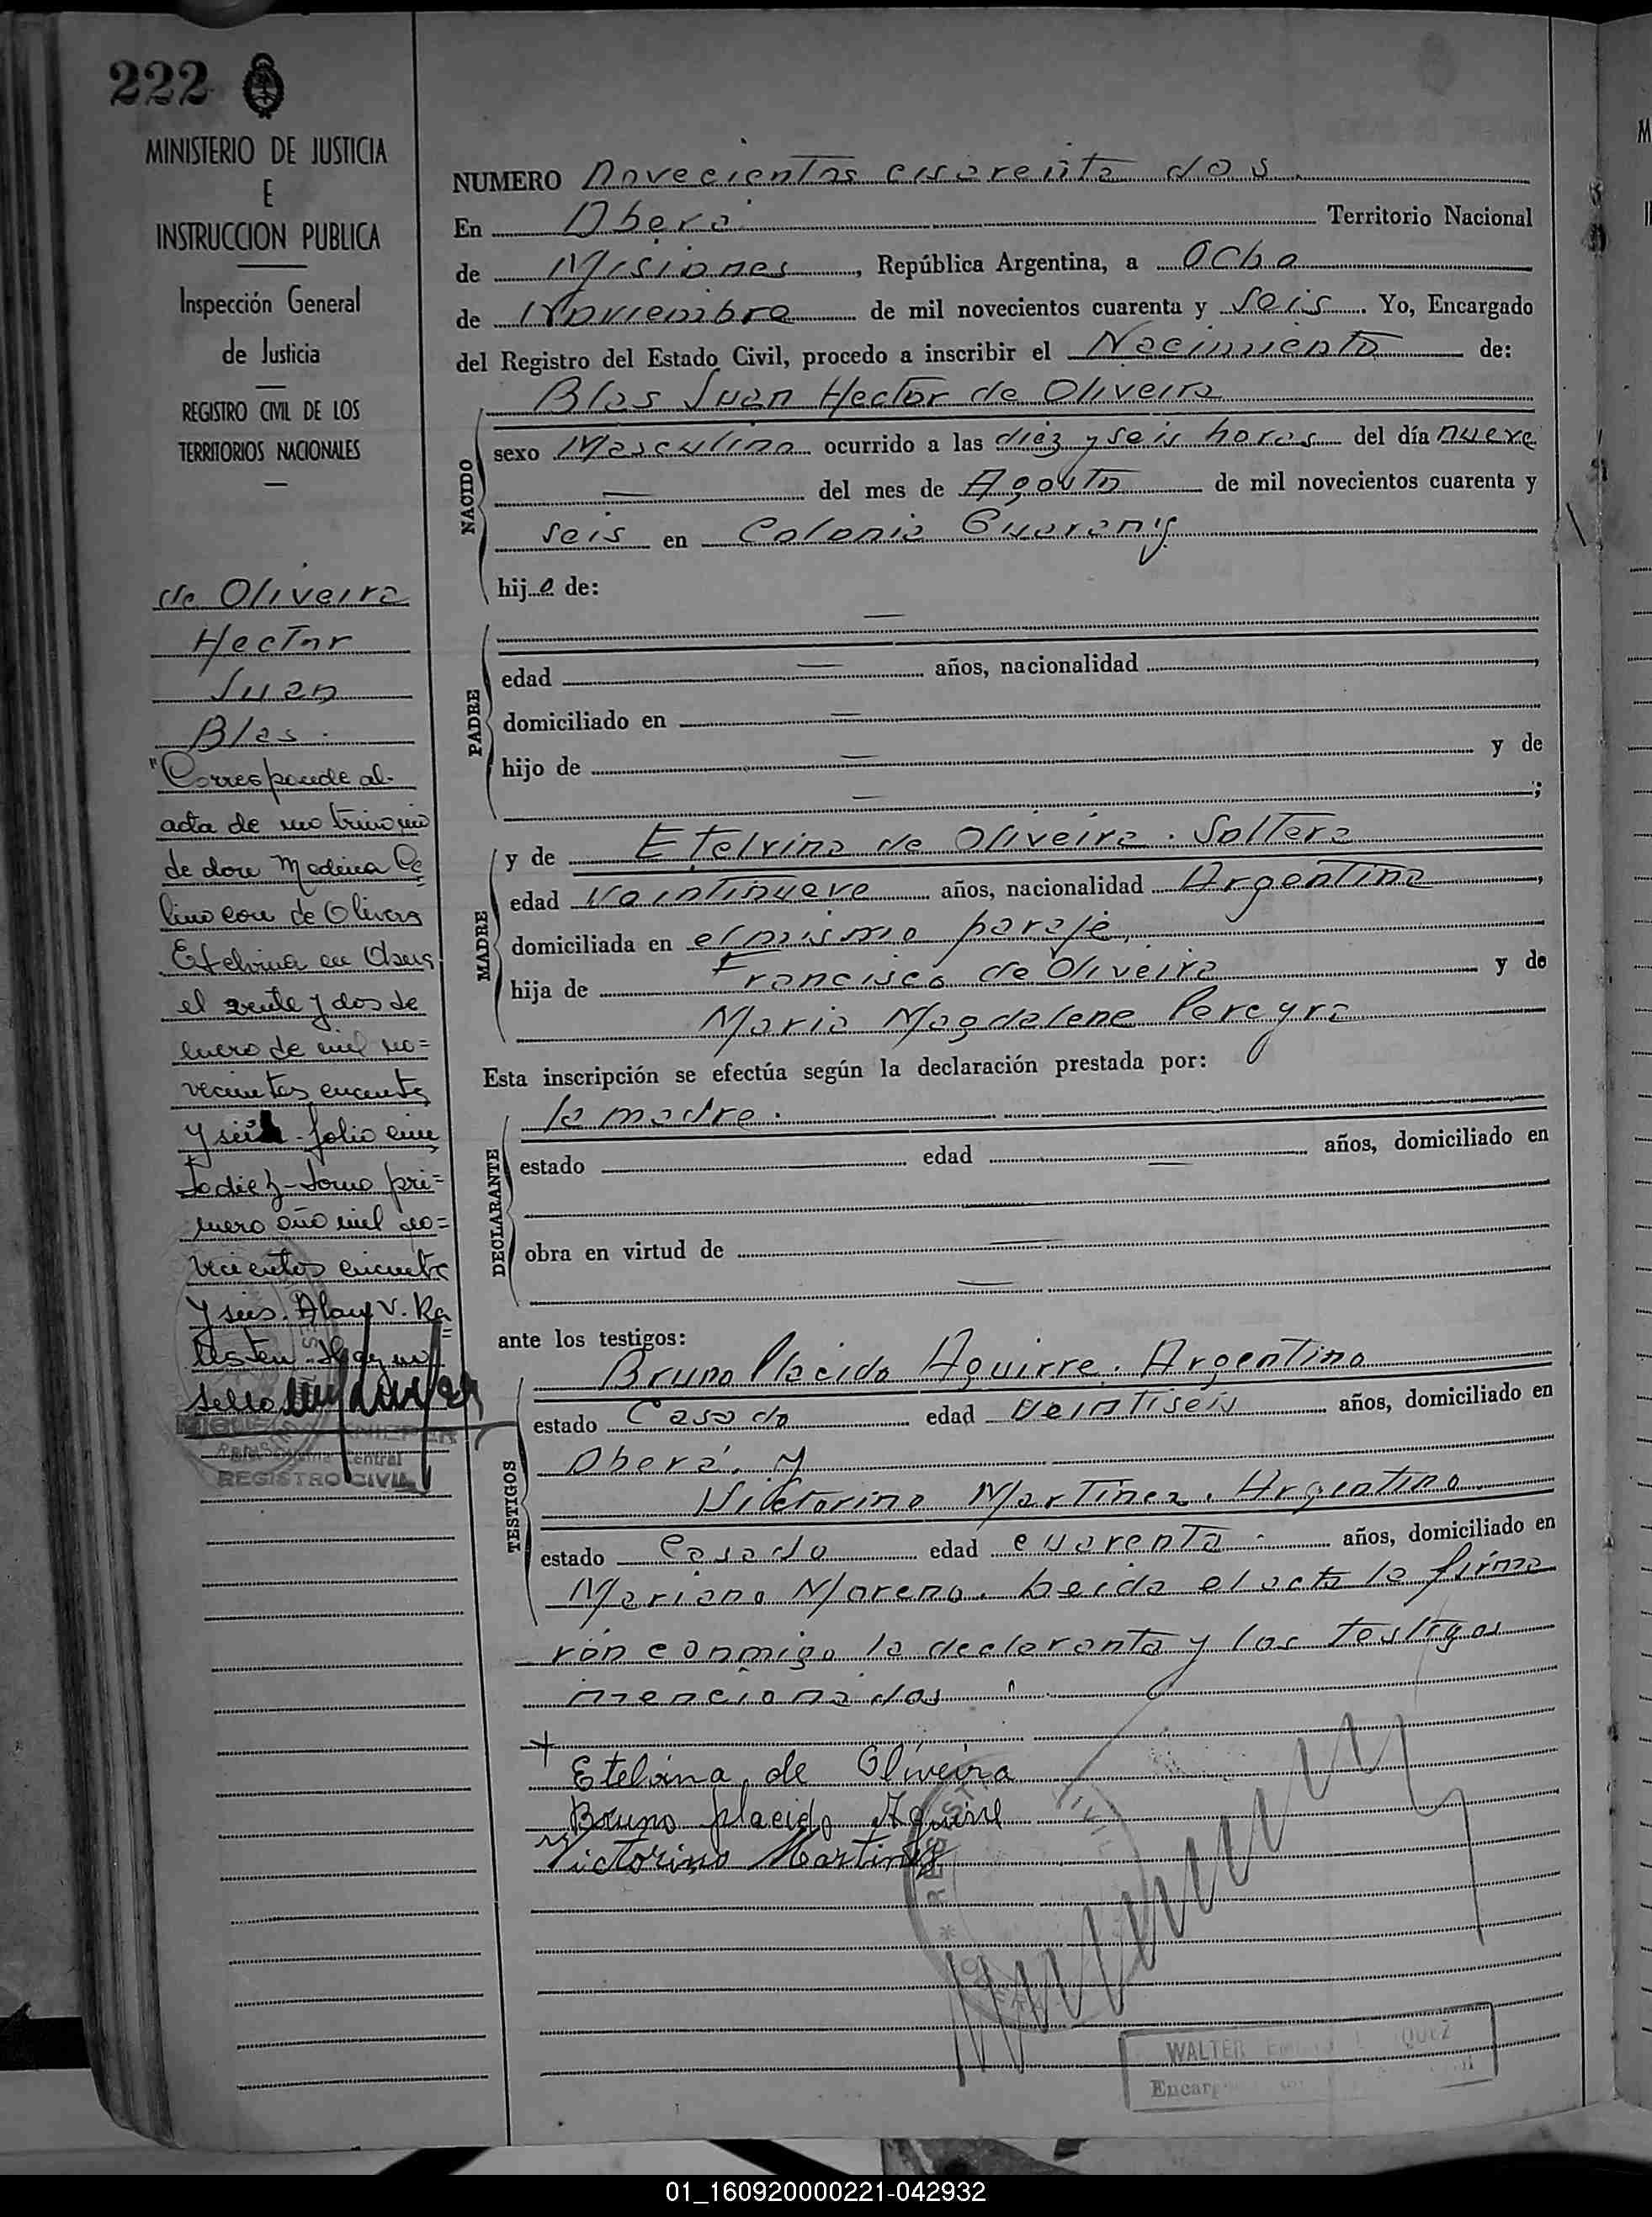 222
MINISTERIO DE JUSTICIA
E
INSTRUCCION PUBLICA
Inspección General
de Justicia
REGISTRO CIVIL DE LOS
TERRITORIOS NACIONALES
de Oliveira
Hector
Juan
Blas.
"Corresponde al
acta de matrimonio
de don Medina Ce=
lino con de Olivera
Etelvina en
el veinte y dos de
enero de mil no=
vecientos cuarenta
y seis - folio cien
to diez - tomo pri=
mero año mil no=
vecientos cuarenta
y seis. V.
Hay un
sello
Central
REGISTRO CIVIL
NUMERO Novecientos cuarenta dos.
En Oberá Territorio Nacional
de Misiones, República Argentina, a Ocho
de Noviembre de mil novecientos cuarenta y Seis. Yo, Encargado
del Registro del Estado Civil, procedo a inscribir el Nacimiento de:
Blas Juan Hector de Oliveira
NACIDO
sexo Masculino ocurrido a las diez y seis horas del día nueve
— del mes de Agosto de mil novecientos cuarenta y
seis en Colonia Guarany
hijo de:
—
PADRE
edad — años, nacionalidad
domiciliado en —
hijo de — y de
— ;
MADRE
y de Etelvina de Oliveira. Soltera
edad Vaintinueve años, nacionalidad Argentina,
domiciliada en el mismo paraje,
hija de Francisco de Oliveira y de
Maria Magdalena Pereyra
Esta inscripción se efectúa según la declaración prestada por:
DECLARANTE
la madre.
estado — edad — años, domiciliado en
obra en virtud de —
—
ante los testigos:
TESTIGOS
Bruno Placido Aguirre. Argentino
estado Casado edad Veintiseis años, domiciliado en
Oberá. y
Victorino Martinez. Argentino
estado Casado edad cuarenta. años, domiciliado en
Mariano Moreno. Leida el acta la firma
rón conmigo la declaranta y los testigos
mencionados
Etelvina de Oliveira
Bruno placido Aguirre
Victorino Martinez
WALTER
Encar
01_160920000221-042932